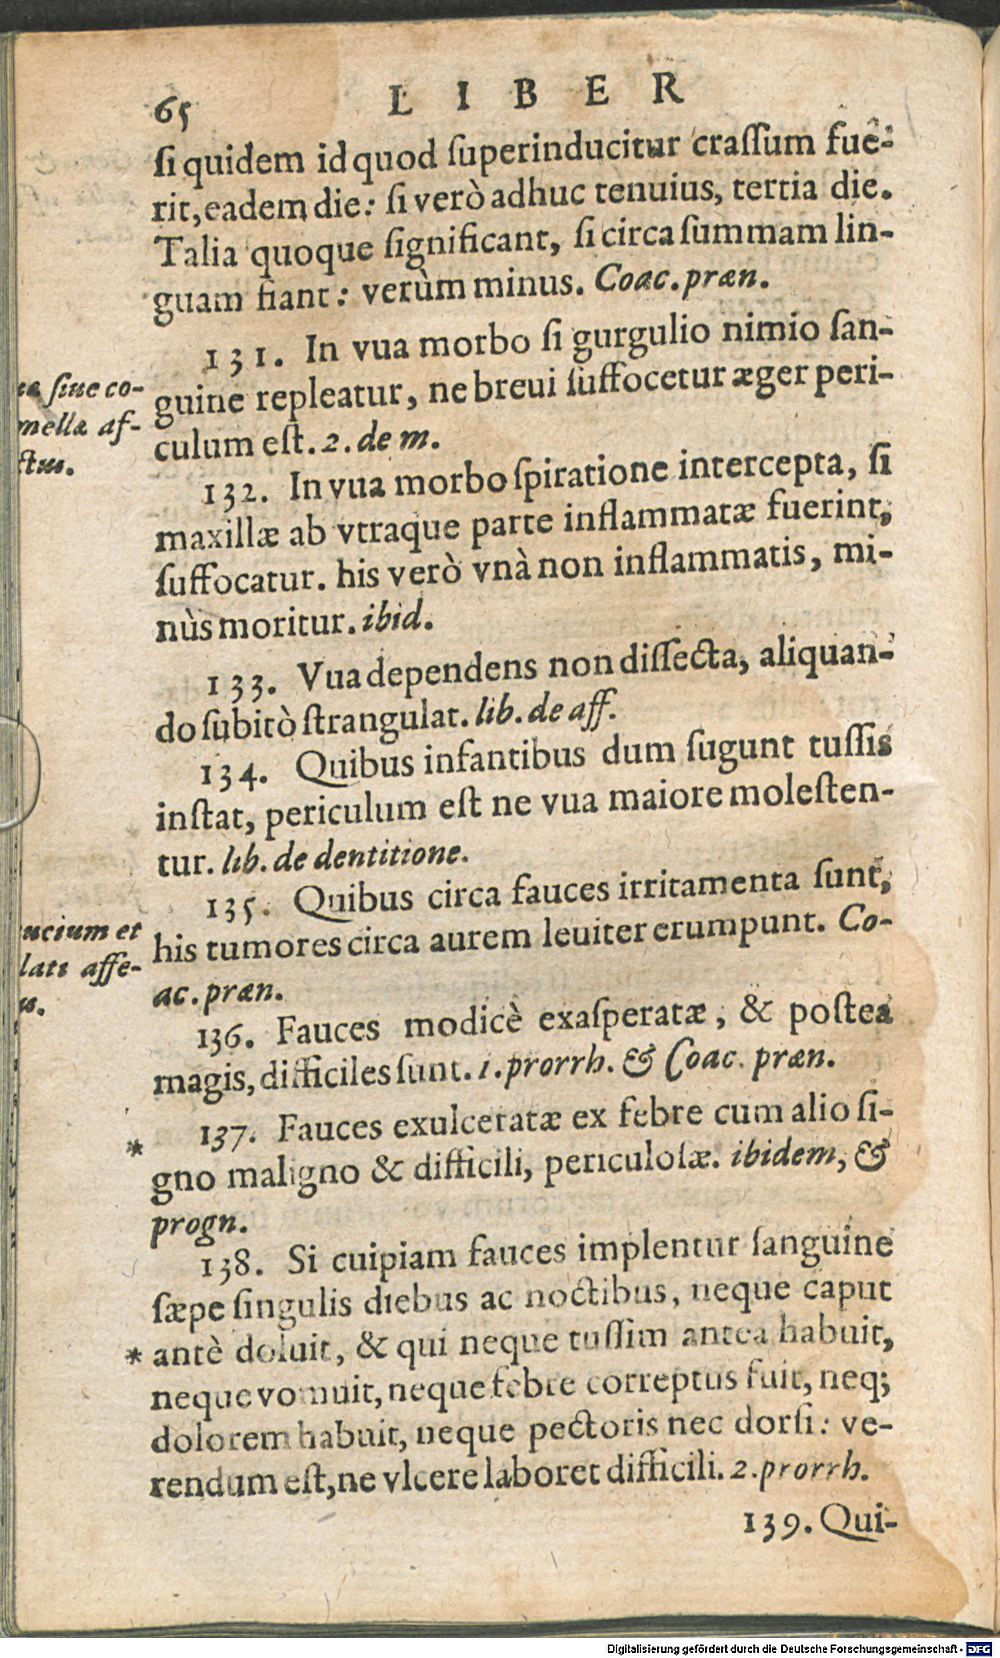 65 LIBER
ſi quidem id quod ſuperinducitur craſſum fue-
rit, eadem die: ſi verò adhuc tenuius, tertia die.
Talia quoque ſignificant, ſi circa ſummam lin-
guam fiant: verùm minus. Coac. præn.
131. In vua morbo ſi gurgulio nimio ſan-
guine repleatur, ne breui ſuffocetur æger peri-
culum eſt. 2. de m.
ſiue co-
mellæ af-
ctus.
132. In vua morbo ſpiratione intercepta, ſi
maxillæ ab vtraque parte inflammatæ fuerint,
ſuffocatur. his verò vnà non inflammatis, mi-
nùs moritur. ibid.
133. Vua dependens non diſſecta, aliquan-
do ſubitò ſtrangulat. lib. de aff.
134. Quibus infantibus dum ſugunt tuſſis
inſtat, periculum eſt ne vua maiore moleſten-
tur. lib. de dentitione.
135. Quibus circa fauces irritamenta ſunt,
his tumores circa aurem leuiter erumpunt. Co-
ac. præn.
ucium et
lati affe-
us.
136. Fauces modicè exaſperatæ, & poſtea
magis, difficiles ſunt. 1. prorrh. & Coac. præn.
137. Fauces exulceratæ ex febre cum alio ſi-
* gno maligno & difficili, periculoſæ. ibidem, &
progn.
138. Si cuipiam fauces implentur ſanguine
ſæpe ſingulis diebus ac noctibus, neque caput
* antè doluit, & qui neque tuſſim antea habuit,
neque vomuit, neque febre correptus fuit, neq;
dolorem habuit, neque pectoris nec dorſi: ve-
rendum eſt, ne vlcere laboret difficili. 2. prorrh.
139. Qui-
Digitalisierung gefördert durch die Deutsche Forschungsgemeinschaft - DFG